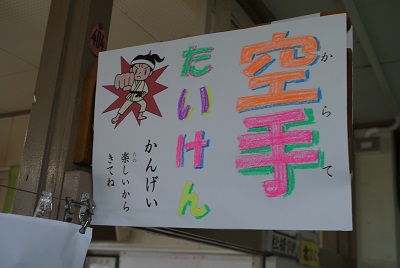 空手
からて
たいけん
かんげい
楽しいから
たの
きてね
404